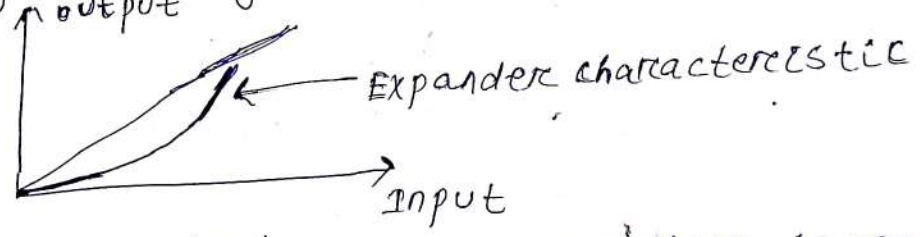 output
Expander characteristic
Input